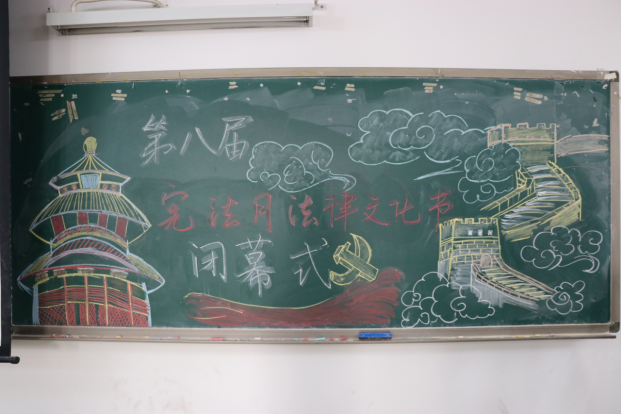 第八届
宪法月法律文化节
闭幕式